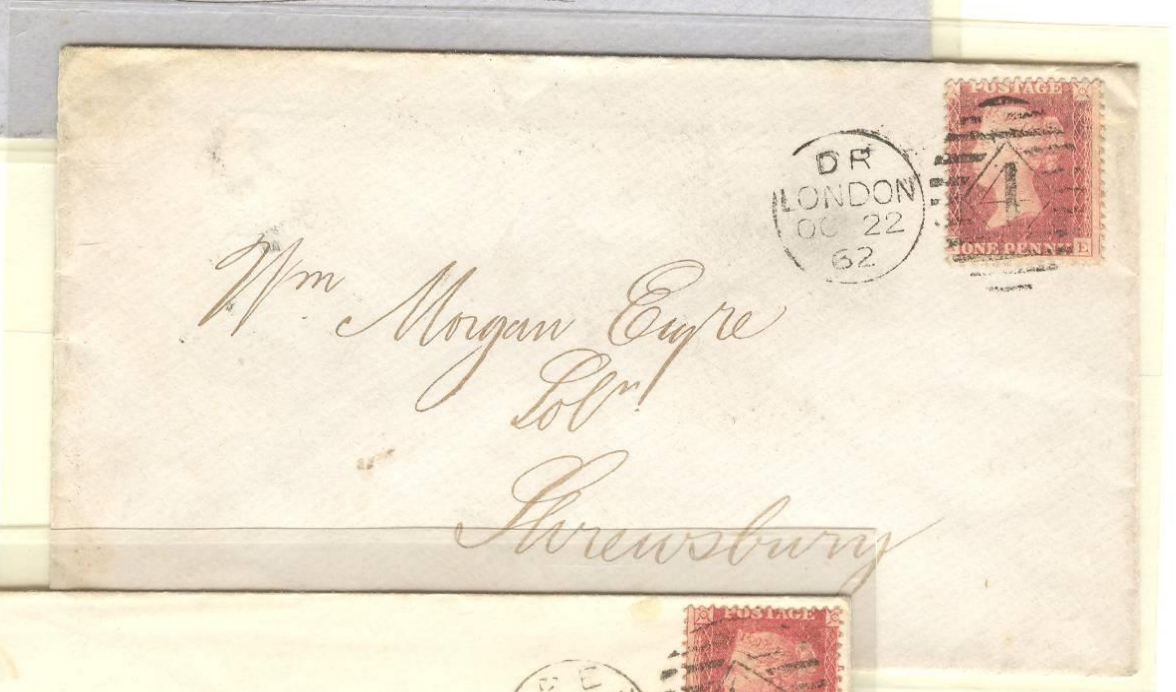 POSTAGE
ONE PENNY E
DR
LONDON
OC 22
62
1
Wm Morgan Eyre
Solr.
Shrewsbury
POSTAGE
E